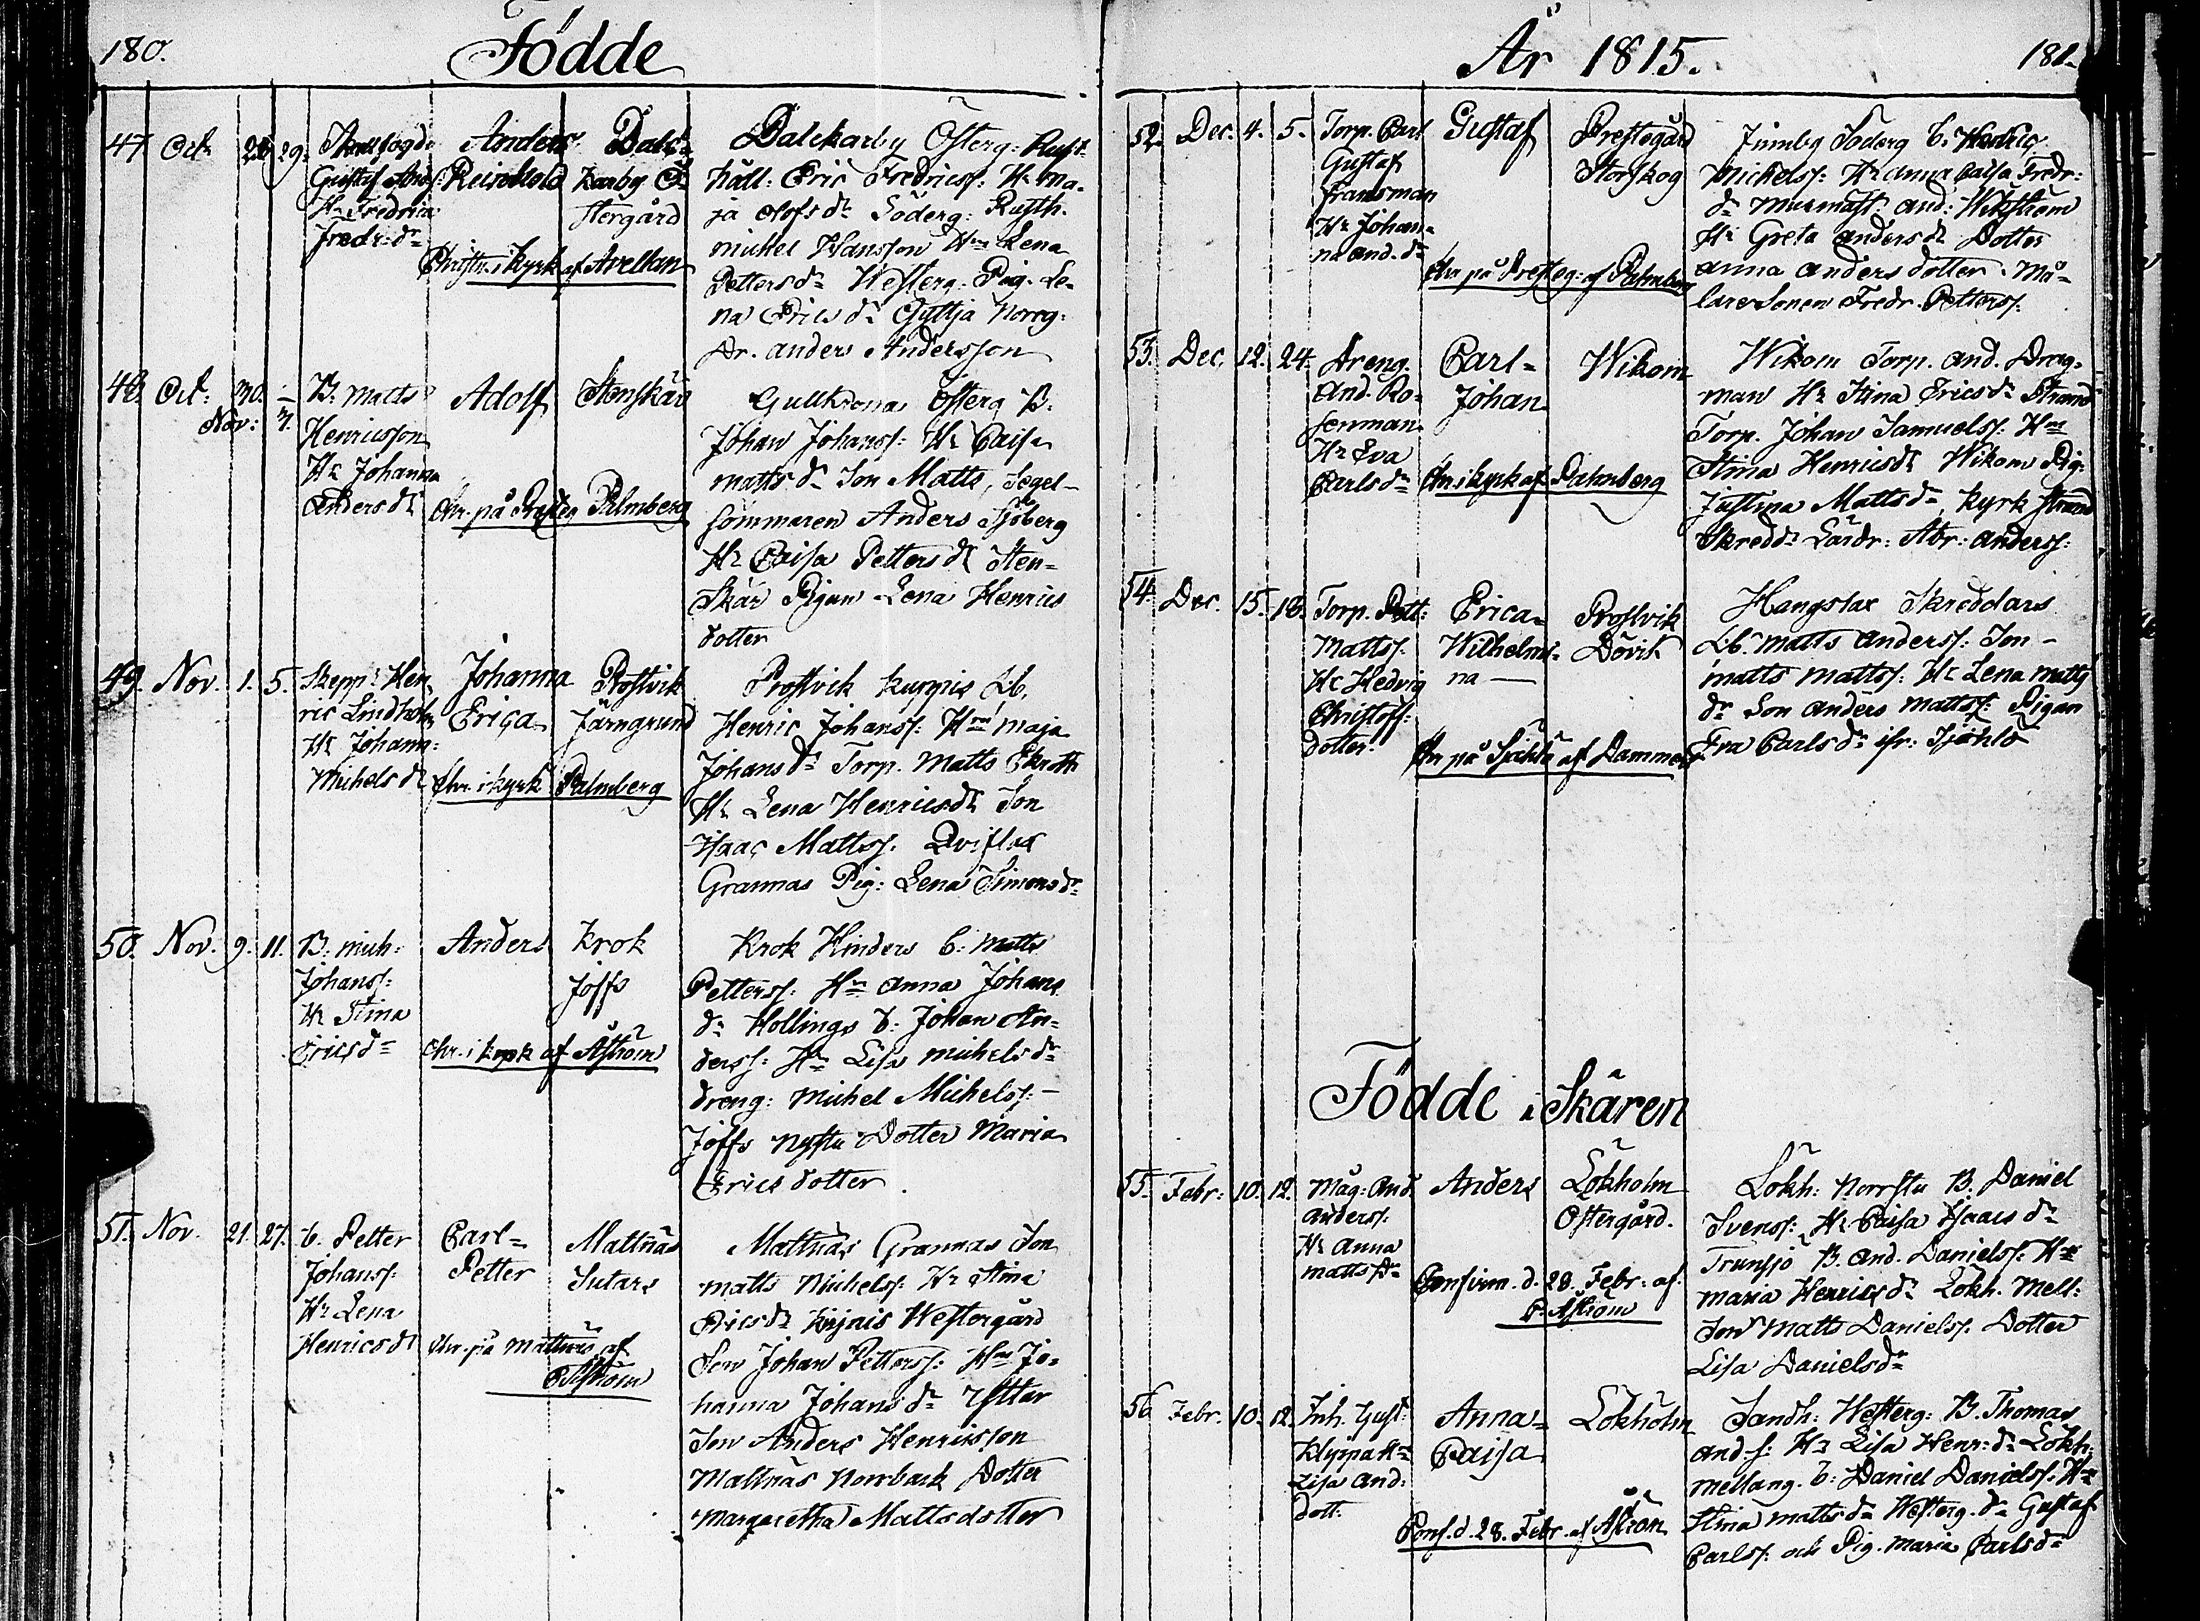 180.
Födde
47. Oct. 28 29.
Gustaf And.s:
Hr Fredrica
Fredr: dr
Anders
Reinhold
Dals-
karby Ö-
stergård
Christn. i kyrk. af Avellan
Dalckarby Österg: Rust-
håll: Eric Fredricss: Hr Ma-
ja Olofs dr Söderg: Rusth.
Michel Hansson Hru Lena
Petters dr Westerg: Pig. Le-
na Erics dr Gyttja Norrg:
Dr. Anders Andersson
48. Oct: 30. –
Nov: 7.
B. Matts
Henricsson
Hr Johanna
Anders dr
Adolf
Stenskär
Chr. på Presteg Palmberg
Gullkrona Österg B.
Johan Johanss: Hr Caisa
Matts dr Son Matts, Segel-
sömmaren Anders Sjöberg
Hr Caisa Petters dr Sten-
skär Pigan Lena Henrics
dotter
49. Nov. 1. 5.
Skepp: Hen-
ric Lindholm
Hr Johann:
Michels dr
Johanna
Erica
Prostvik
Järngrund
Chr. i kyrk Palmberg
Prostvik Kuppis Lb.
Henric Johanss: Hru Maja
Johans dr Torp. Matts Ekroth
Hr Lena Henricsdr Son
Isaac Mattss. Qviflax
Grannas Pig: Lena Simons dr
50. Nov. 9. 11.
B. Mich:
Johanss:
Hr Stina
Erics dr
Anders
Krok
Jöffs
Chr. i kyrk af Åström
Krok Hinders b: Matts
Petterss: Hru Anna Johans
dr Hollings b: Johan An-
derss: Hru Lisa Michels dr
dreng: Michel Michelss: –
Jöffs Nystu Dotter Maria
Erics dotter.
51. Nov. 21. 27.
b. Petter
Johanss:
Hr Lena
Henrics dr
Carl-
Petter
Mattnäs
Sutars
Chr. på Mattnäs af
P Åström
Mattnäs Grannas Son
Matts Michelss: Hr Stina
Erics dr Kirjais Westergård
Son Johan Petterss: Hru Jo-
hanna Johans dr Ytttar
Son Anders Henricsson
Mattnäs Norrback Dotter
Margaretha Mattsdotter
År 1815.
181.
52. Dec. 4. 5.
Torp. Carl
Gustaf
Fransman
Hr Johan-
na And. dr
Gustaf
Prestegård
Storskog
Chr på Presteg: af Palmberg
Simby Söderg b. Hendric
Mickelss: Hr Anna Caisa Fredr:
dr Murmäst: And: Wikström
Hr Greta Anders dr Dotter
Anna Anders dotter. Må-
lare Sonen Fredr. Petterss.
53. Dec. 12. 24.
Dreng.
And. Ro-
senman
Hr Eva
Carls dr
Carl-
Johan
Wikom
Chr. i kyrk af Palmberg
Wikom Torp. And. Drag-
man Hr Stina Ericsdr Strand
Torp. Johan Samuelss. Hru
Stina Henricsdr Wikom Pig.
Justina Matts dr, Kyrk strand
Skredd: Lärdr: Abr: Anderss:
54. Dec. 15. 18.
Torp. Pett:
Mattss.
Hr Hedvig
Christoff:
dotter
Erica-
Wilhelmi-
na –
Prostvik
Dövik
Chr på Sjählö af Dammert
Hangslax Skreddars
Lb. Matts Anderss: Son –
Matts Mattss: Hr Lena Matts
dr Son Anders Mattss: Pigan
Eva Carls dr ifr: Sjöhlö
Födde i Skären
55. Febr: 10. 12.
Måg: And.
Anderss.
Hr Anna
Matts dr
Anders
Lökholm
Östergård.
Confirm. d. 28. Febr: af
P. Åström
Lökh: Norrstu B. Daniel
Svenss: Hr Caisa Isaacs dr
Trunsjö B. And. Danielss: Hr
Maria Henrics dr Lökh. Mell:
Son Matts Danielss. Dotter
Lisa Danielsdr
56 Febr. 10. 12.
Inh. Gust:
Klyppa Hr
Lisa And:
dott:
Anna-
Caisa
Lökholm
Conf. d. 28. Febr. af Åström
Sandh: Westerg: B. Thomas
And. s: Hr Lisa Henr: dr Lökh:
mellang. b: Daniel Danielss: Hr
Stina Matts dr Westerg. dr Gustaf
Carlss: och Pig. Maria Carls dr